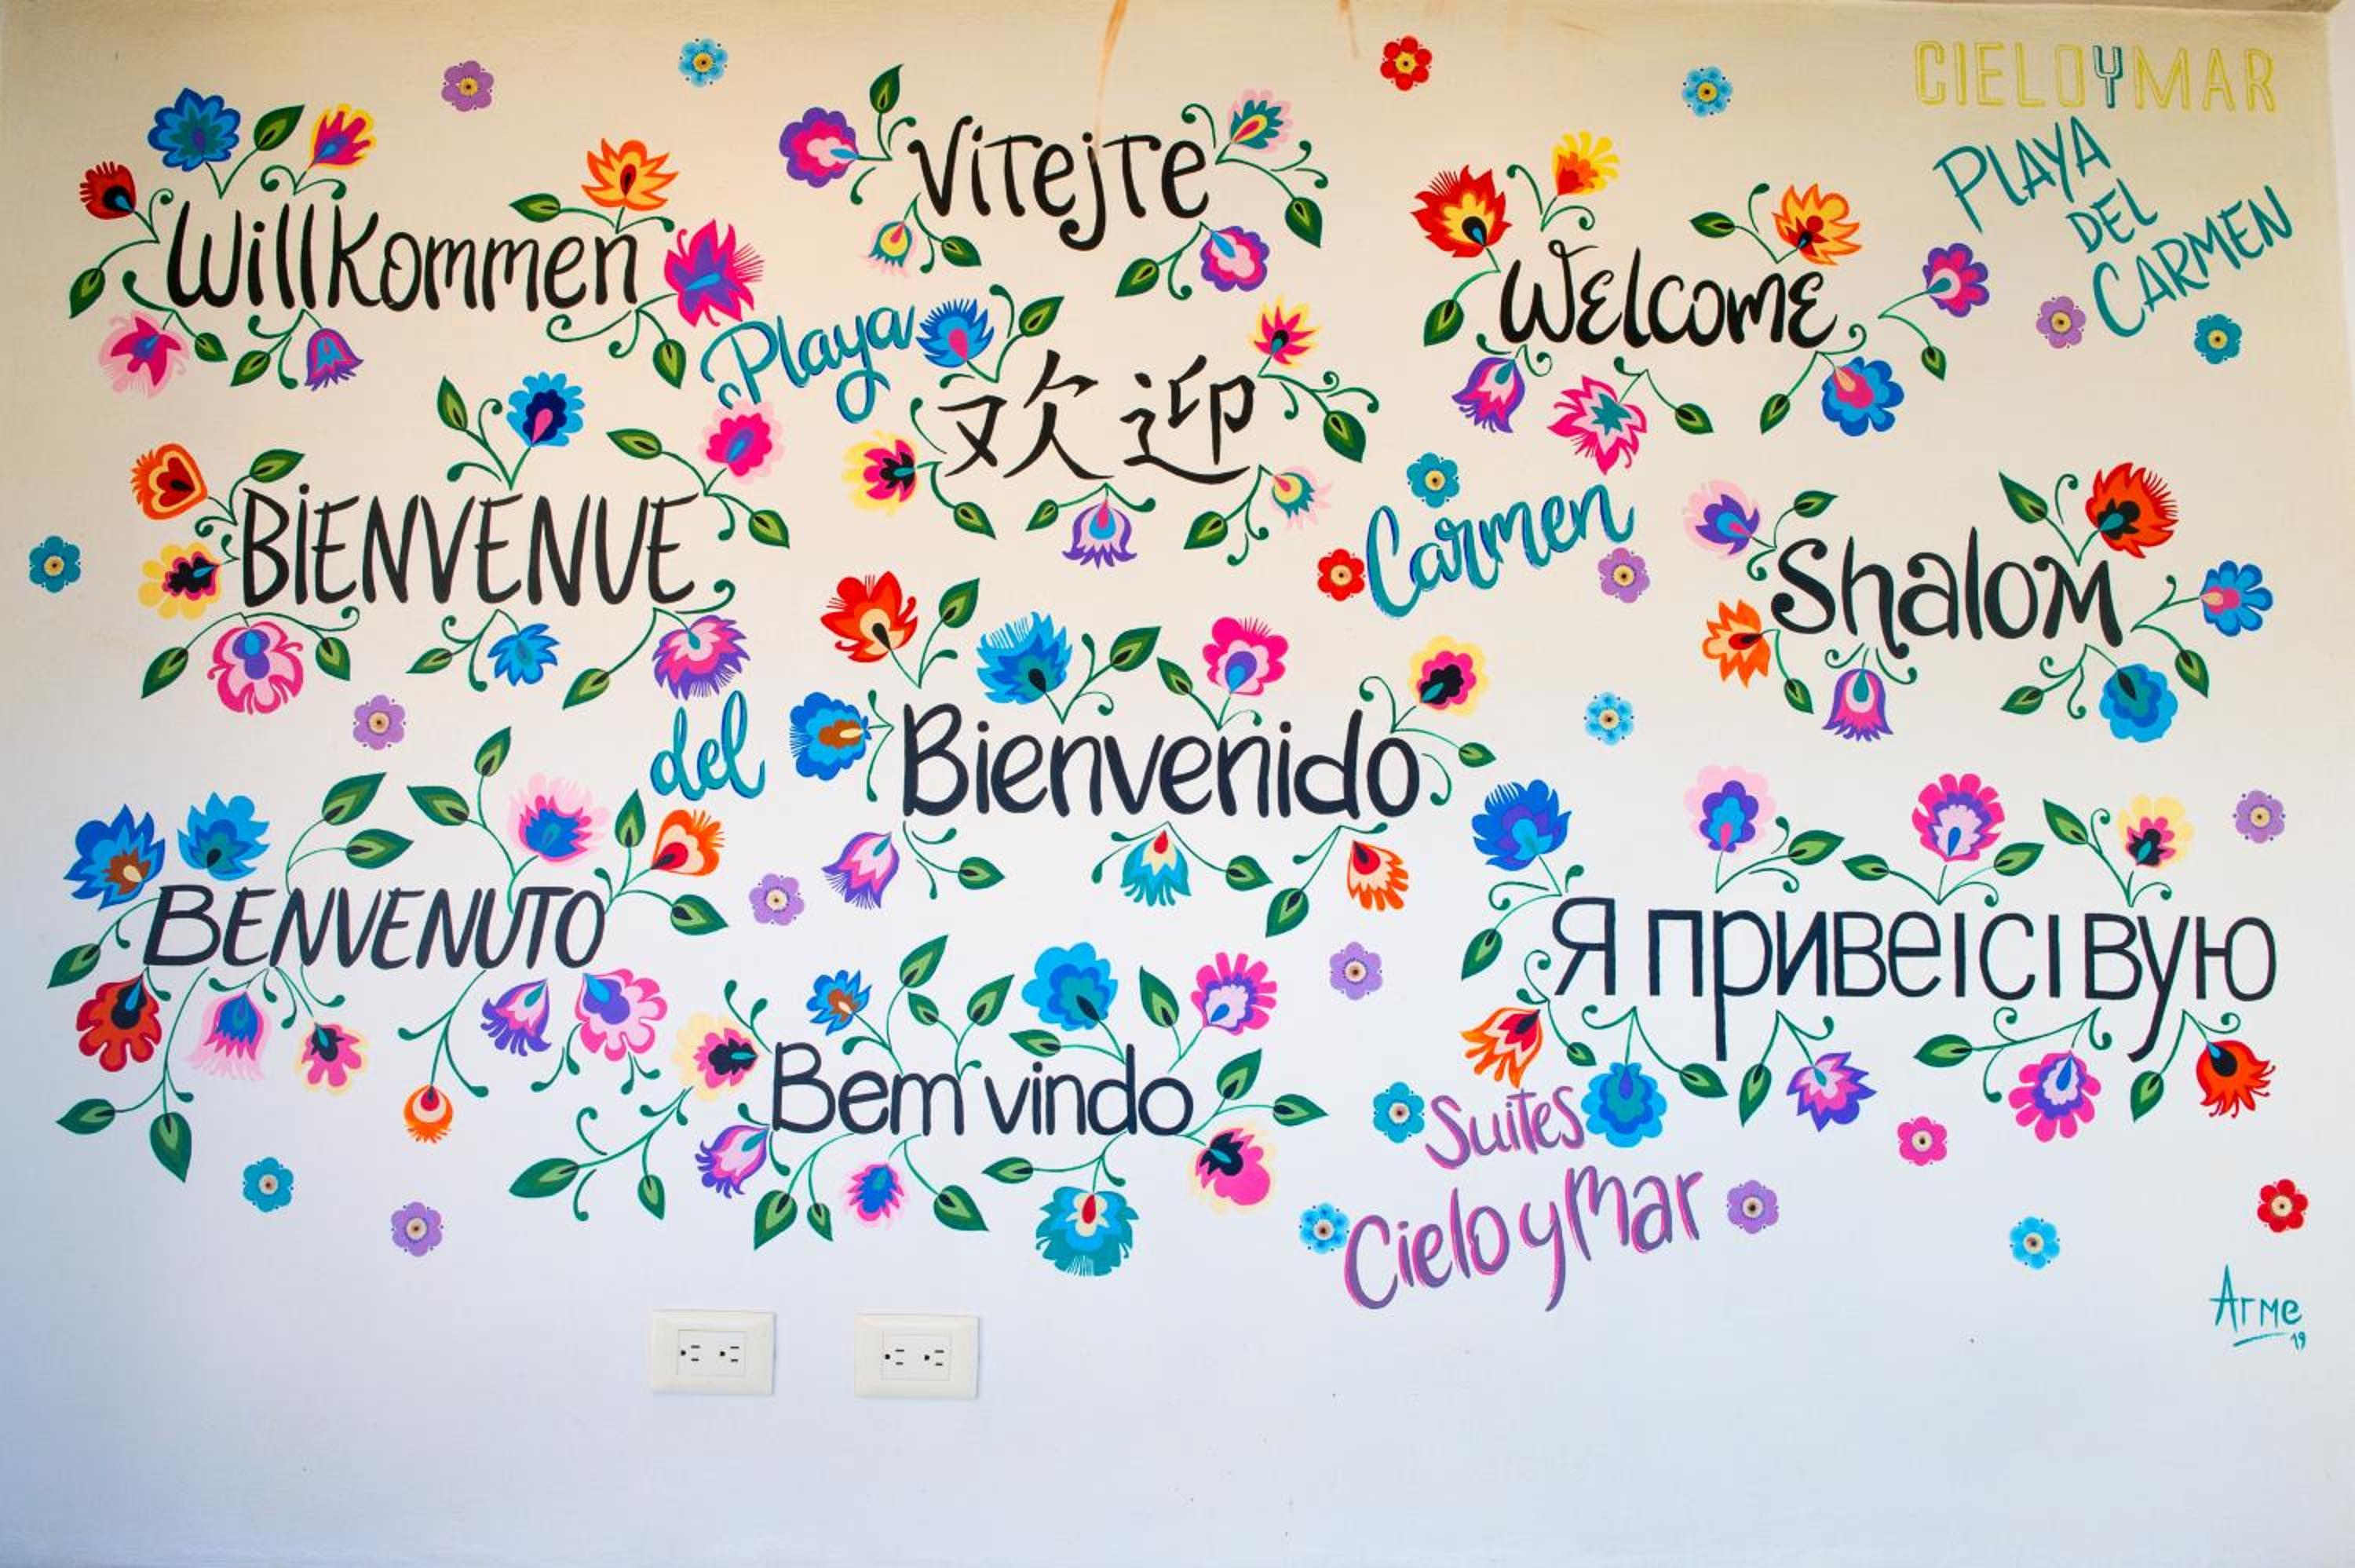 CIELOYMAR
PLAYA
DEL
CARMEN
Willkommen
Vitejte
Welcome
Playa
欢迎
Carmen
BiENVENUE
Shalom
del
Bienvenido
BENVENUTO
Я привеıсıвую
Bem vindo
Suites
Cielo y Mar
Arme
19